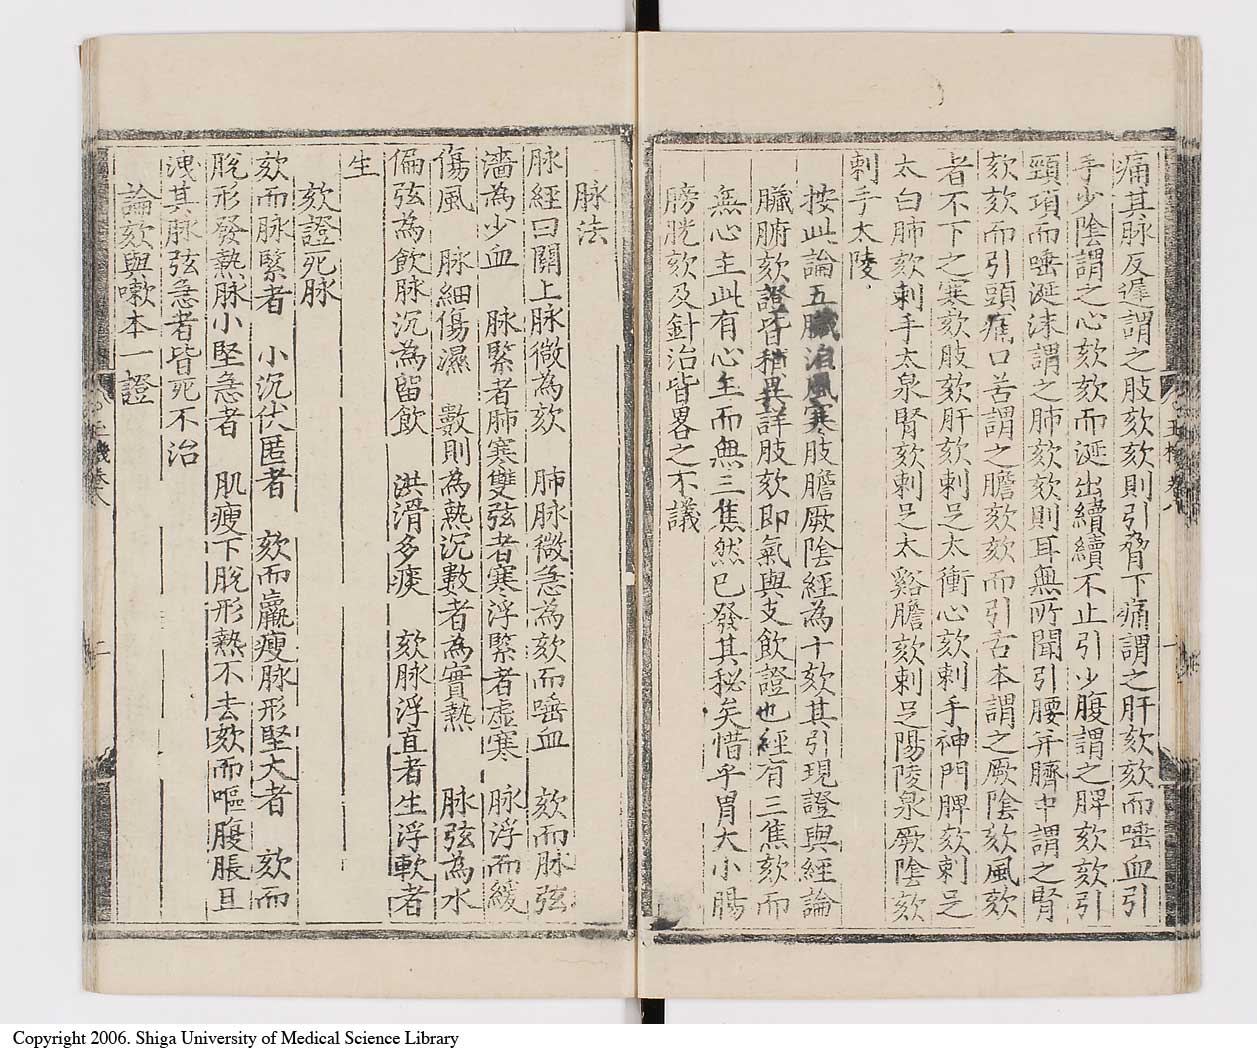 痛其脉反遲謂之肢欬欬則引脅下痛謂之肝欬欬而唾血引
手少陰謂之心欬欬而涎出續續不止引少腹謂之脾欬欬引
頸項而唾涎沫謂之肺欬欬則耳無所聞引腰并臍中謂之腎
欬欬而引頭痛口苦謂之膽欬欬而引舌本謂之厥陰欬風欬
者不下之寒欬肢欬肝欬刺足太衝心欬刺手神門脾欬刺足
太白肺欬刺手太泉腎欬刺足太谿膽欬刺足陽陵泉厥陰欬
刺手太陵
按此論五臟泊風寒肢膽厥陰經為十欬其引現證與經論
臟腑欬證皆稍異詳肢欬即氣與支飲證也經有三焦欬而
無心主此有心主而無三焦然已發其秘矣惜乎胃大小腸
膀胱欬及針治皆畧之不議
脉法
脉經曰關上脉微為欬 肺脉微急為欬而唾血 欬而脉弦
濇為少血 脉緊者肺寒雙弦者寒浮緊者虛寒 脉浮而緩
傷風 脉細傷濕 數則為熱沉數者為實熱 脉弦為水
偏弦為飲脉沉為留飲 洪滑多痰 欬脉浮直者生浮軟者
生
欬證死脉
欬而脉緊者 小沉伏匿者 欬而羸瘦脉形堅大者 欬而
脫形發熱脉小堅急者 肌瘦下脫形熱不去欬而嘔腹脹且
洩其脉弦急者皆死不治
論欬與嗽本一證
Copyright 2006. Shiga University of Medical Science Library